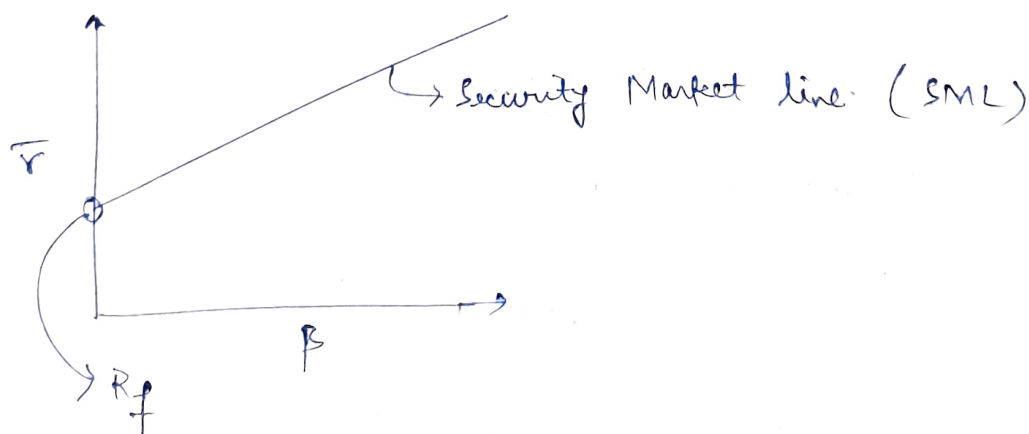 Security Market line. (SML)
r̄
β
Rf